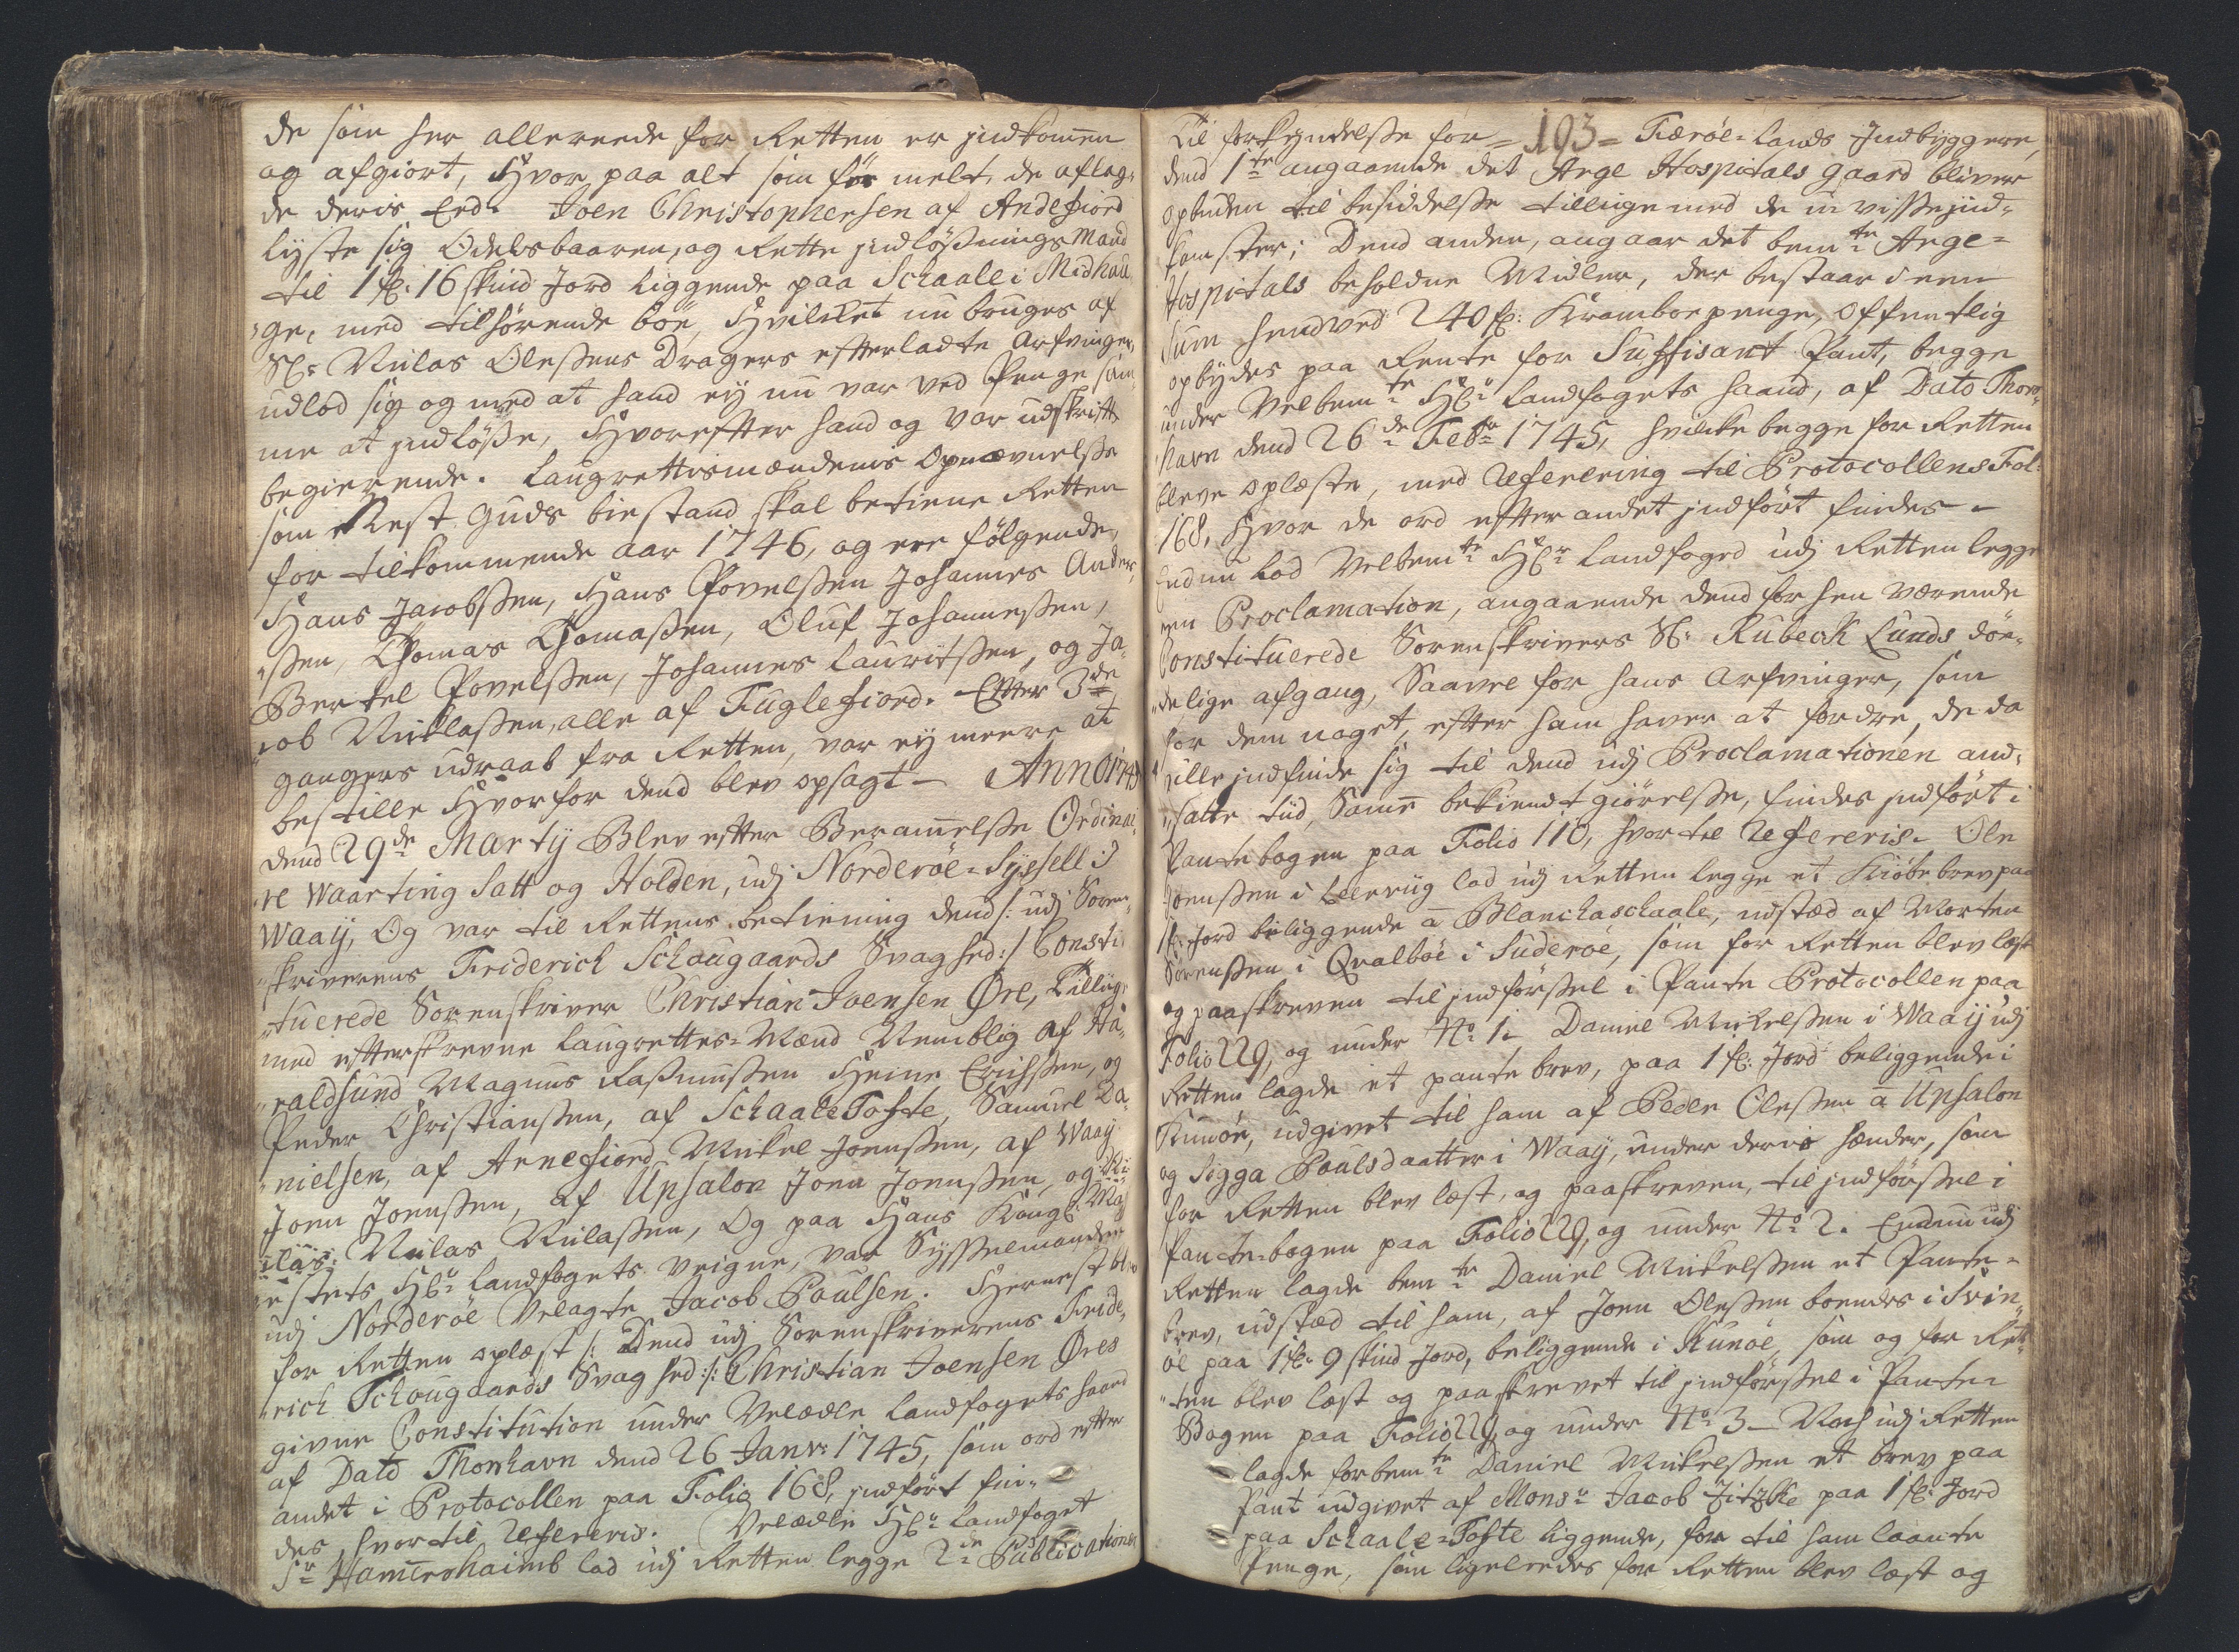 de som her allereede for Retten er indkommen
og afgiort, Hvor paa alt som før melt, de aflag¬
de deris Eed. Joen Christophersen af Andefiord
lyste sig Odelsbaaren, og Rette indløsnings Mand
til 1 f: 16 skind Jord liggende paa Schaale i Midhau
ge, med tilhørende böe, Hvilcket nu bruges af
Sl: Niclas Olessens Dragers efterladte Arfvinger,
udlod sig og med at hand ey nu var ved Penge sam
me at indlösse, Hvorefter hand og var udskrift
begierende. Laugrettismændenis Opnævnelsse
som Nest Guds bistand skal betiene Retten
for tilkommende aar 1746, og ere følgende,
Hans Jacobssen, Hans Povelssen Johannes Ander,
ssen, Thomas Thomassen, Oluf Johannessen,
Bertel Povelssen, Johannes Lauritssen, og Ja¬
cob Nicklassen, alle af Fuglefiord. Efter 3de
gangers udraab fra Retten, var ey meere at
bestille Hvorfor dend blev opsagt – Anno 1745
dend 29de Martij Blev efter Berammelsse Ordinai¬
re Waarting Satt og Holden, udj Norderöe-Syssell i
Waaij, Og var til Rettens betiening dend /: udj Soren¬
skriverens Friderich Schougaards Svaghed :/ Consti
tuerede Sorenskriver Christian Joensen Øre, Tillige
med efterskrevne Laugrettes-Mænd Nemblig af Ha¬
raldsund Magnus Rasmussen Heine Erichssen, og
Peder Christianssen, af Schaaletofte, Samuel Da¬
nielsen, af Arnefiord Mickel Joenssen, af Waaij
Joen Joenssen, af Upsalon Joen Joenssen, og Ni
clas: Niclas Niclassen, Og paa Hans Kongl: Ma
jestets Hr: Landfogets Veigne, var Sysselmanden
udj Norderöe Velagte Jacob Poulsen. Hernest blev
for Retten oplæst /: Dend udj Sorenskriverens Fride,
rich Schougaards Svaghed :/: Christian Joensen Øres
givne Constitution under Velædle Landfogets haand
af Dato Thorshavn dend 26 Janv: 1745, som ord efter
andet i Protocollen paa Folio 168, indført fin¬
des, hvortil Refereris. Velædle Hr: Landfoget
Sr: Hammershaimb lod udj Retten legge 2de Publicationer
Til forkyndelsse for = 193 = Færöe-Lands Indbyggere,
dend 1te angaaende det Arge Hospitals gaard bliver
opbuden til besiddelsse tillige med de u-visse ind¬
komster; Dend anden, angaar det bemte Arge=
Hospitals beholdne Midler, der bestaar i een
Sum henved 240 f: Kramboe penge, offentlig
opbydes paa Rente for Suffisant Pant, begge
under Velbemte Hr: Landfogets haand, af Dato Thors
havn dend 26de Febr: 1745, hvilcke begge for Retten
bleve oplæste, med Referering til Protocollens Fol:
168, Hvor de ord efter andet indført findes –
Endnu lod Velbemte Hr: Landfoged udj Retten legge
een Proclamation, angaaende dend forhen værende
Constituerede Sorenskrivers Sl: Rubeck Lunds döe¬
delige afgang, Saavel for hans Arfvinger, som
for dem noget efter ham haver at fordre, de da
ville indfinde sig til dend udj Proclamationen and¬
satte tiid, Samme bekiendtgiörelsse, findes indfört i
Pantebogen paa Folio 110, hvortil Refereris. Ole
Joenssen i Leervig lod udj Retten legge et Kiöbebrev paa
1 f: Jord beliggende a Blanckaschaale, udstæd af Morten
Sörenssen i Qvalböe i Suderöe, som for Retten blev læst
og paaskreven til indförssel i Pante Protocollen paa
Folio 229, og under No: 1. Daniel Mickelssen i Waaij udj
Retten lagde et pante brev, paa 1 f: Jord beliggende i
Kunöe, udgivet til ham af Peder Olessen a Upsalon
og Sigga Poulsdaatter i Waaij, under deris hænder, som
for Retten blev læst, og paaskreven, til indförssel i
Pantebogen paa Folio 229, og under No: 2. Endnu udj
Retten lagde bemte Daniel Mickelssen et Pante=
brev, udstæd til ham, af Joen Olessen boendes i Svin¬
öe paa 1 f: 9 skind Jord, beliggende i Kunöe, som og for Ret¬
ten blev læst og paaskrevet til indförssel i Pante=
Bogen paa Folio 229, og under No: 3 – Noch udj Retten
lagde forbemte Daniel Mickelssen et brev paa
Pant udgivet af Monsr: Jacob Zitzke paa 1 f: Jord
paa Schaale-Tofte liggende, for til ham laante
Penge, som ligeleedes for Retten blev læst og